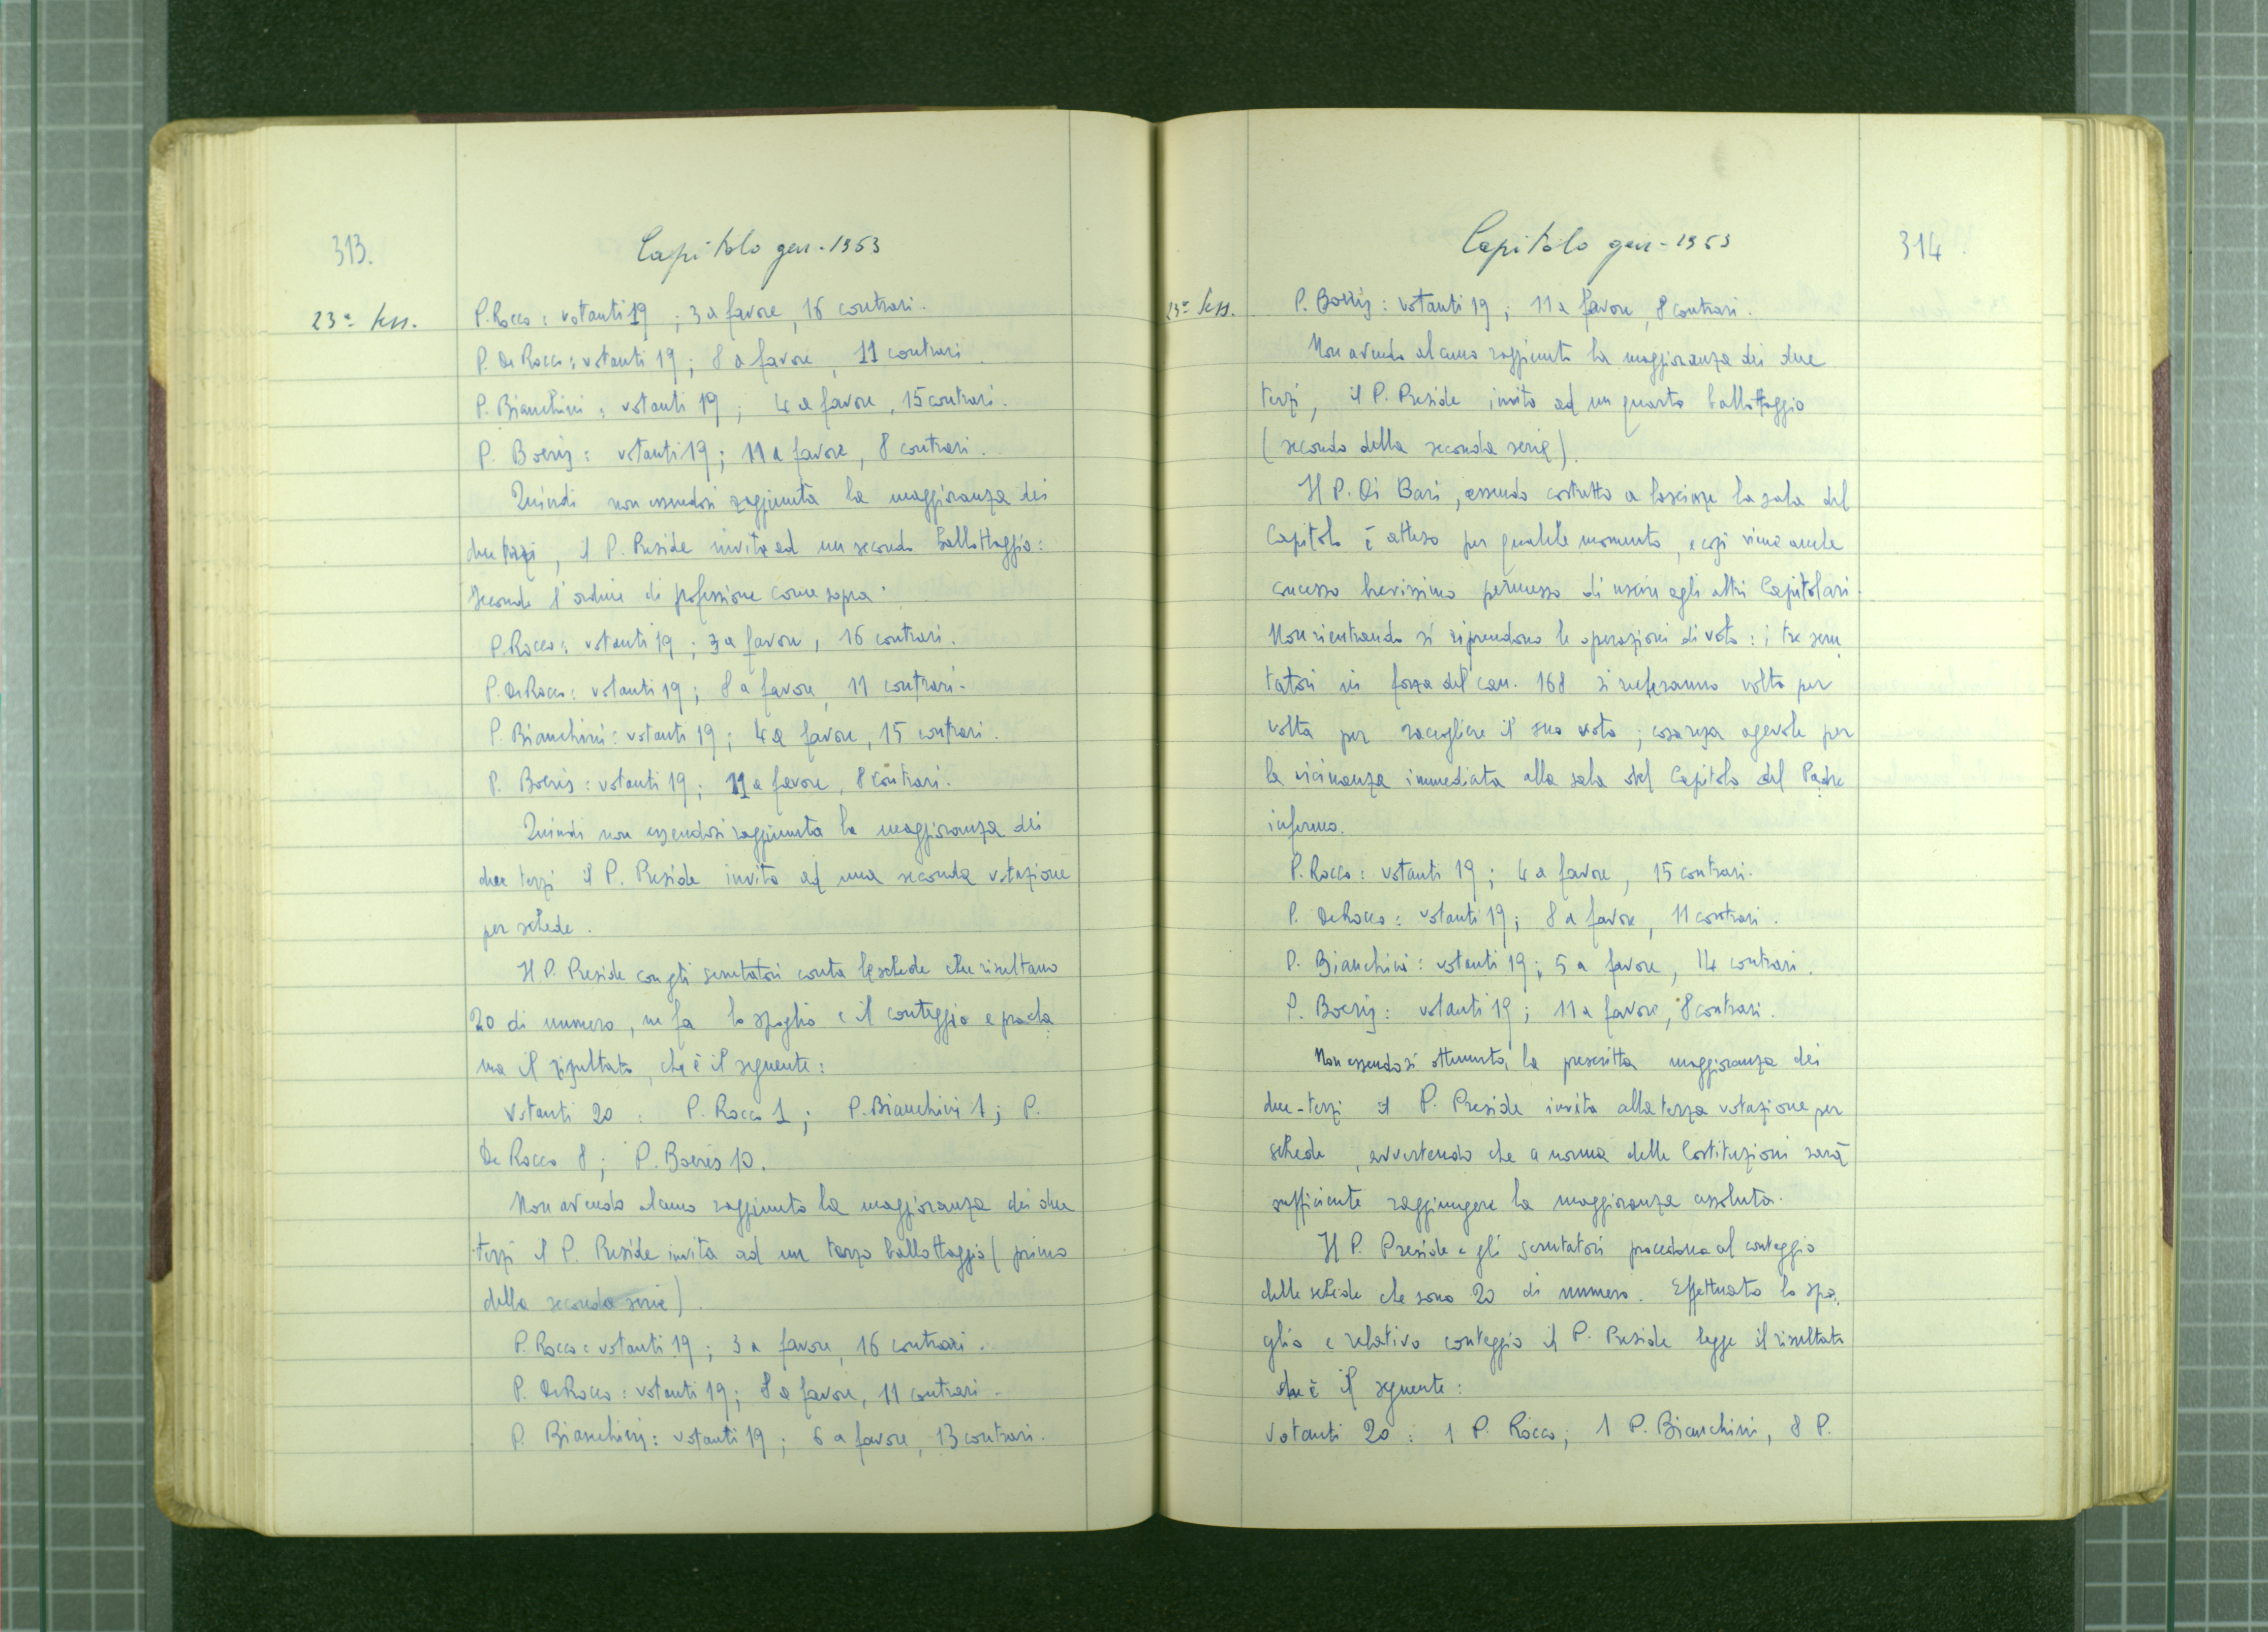 313.
Capitolo gen. 1953
23ª sess.
P. Rocco: votanti 19; 3 a favore, 16 contrari.
P. De Rocco: votanti 19; 8 a favore, 11 contrari.
P. Bianchini: votanti 19; 4 a favore, 15 contrari.
P. Boeris: votanti 19; 11 a favore, 8 contrari.
Quindi non essendosi raggiunta la maggioranza dei
due terzi, il P. Preside invita ad un secondo ballottaggio:
secondo l'ordine di professione come sopra.
P. Rocco: votanti 19; 3 a favore, 16 contrari.
P. De Rocco: votanti 19; 8 a favore, 11 contrari.
P. Bianchini: votanti 19; 4 a favore, 15 contrari.
P. Boeris: votanti 19; 11 a favore, 8 contrari.
Quindi non essendosi raggiunta la maggioranza dei
due terzi il P. Preside invita ad una seconda votazione
per schede.
Il P. Preside con gli scrutatori conta le schede che risultano
20 di numero, ne fa lo spoglio e il conteggio e procla
ma il risultato, che è il seguente:
Votanti 20: P. Rocco 1; P. Bianchini 1; P.
De Rocco 8; P. Boeris 10.
Non avendo alcuno raggiunto la maggioranza dei due
terzi il P. Preside invita ad un terzo ballottaggio (primo
della seconda serie).
P. Rocco: votanti 19; 3 a favore, 16 contrari.
P. De Rocco: votanti 19; 8 a favore, 11 contrari.
P. Bianchini: votanti 19; 6 a favore, 13 contrari.
Capitolo gen. 1953
314.
23ª sess.
P. Boeris: votanti 19; 11 a favore, 8 contrari.
Non avendo alcuno raggiunto la maggioranza dei due
terzi, il P. Preside invita ad un quarto ballottaggio
(secondo della seconda serie).
Il P. Di Bari, essendo costretto a lasciare la sala del
Capitolo è atteso per qualche momento, e così viene anche
concesso brevissimo permesso di uscire agli altri Capitolari.
Non rientrando si riprendono le operazioni di voto: i tre scru
tatori in forza del can. 168 si recheranno volta per
volta per raccogliere il suo voto; cosa resa agevole per
la vicinanza immediata alla sala del Capitolo del Padre
infermo.
P. Rocco: votanti 19; 4 a favore, 15 contrari.
P. De Rocco: votanti 19; 8 a favore, 11 contrari.
P. Bianchini: votanti 19; 5 a favore, 14 contrari.
P. Boeris: votanti 19; 11 a favore, 8 contrari.
Non essendosi ottenuta la prescritta maggioranza dei
due-terzi il P. Preside invita alla terza votazione per
schede, avvertendo che a norma delle Costituzioni sarà
sufficiente raggiungere la maggioranza assoluta.
Il P. Preside e gli scrutatori procedono al conteggio
delle schede che sono 20 di numero. Effettuato lo spo
glio e relativo conteggio il P. Preside legge il risultato
che è il seguente:
Votanti 20: 1 P. Rocco; 1 P. Bianchini, 8 P.